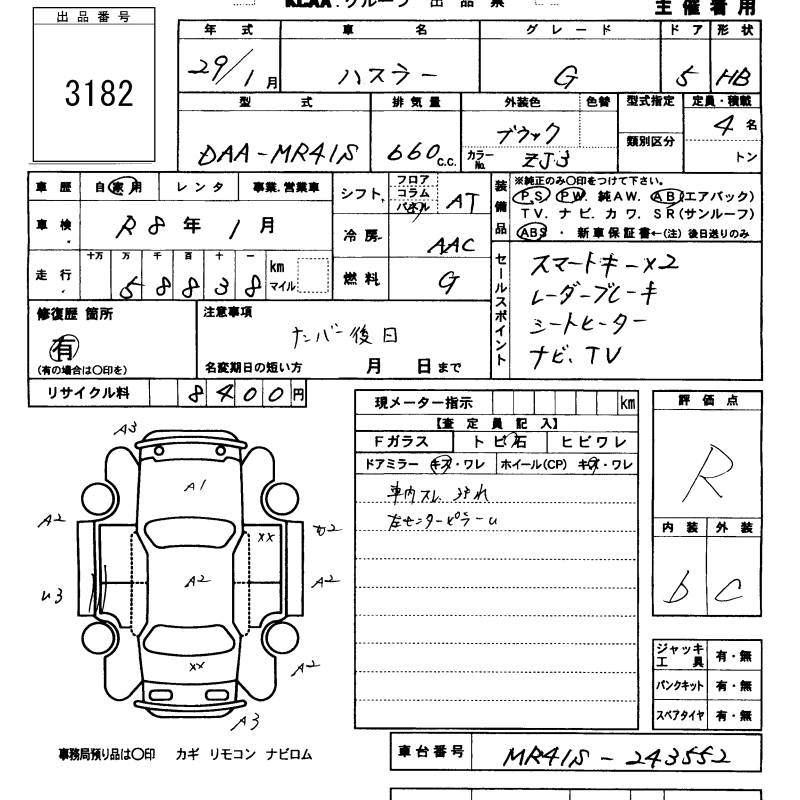 KCAA.グループ 出品票
主催者用
出品番号
3182
年式 車名 グレード ドア 形状
29/1月 ハスラー G 5 HB
型式 排気量 外装色 色替 型式指定 定員・積載
DAA-MR41S 660c.c. ブラック 4名
カラーNo. ZJ3 類別区分 トン
車歴 自家用 レンタ 事業.営業車
車検 R8年1月
走行 十万 万 千 百 十 一
58838 km マイル
シフト フロア コラム パネル AT
冷房 AAC
燃料 G
装備品 ※純正のみ〇印をつけて下さい。
PS PW. 純AW. AB(エアバック)
TV. ナビ. カワ. SR(サンルーフ)
ABS ・ 新車保証書←(注)後日送りのみ
セールスポイント
スマートキー×2
レーダーブレーキ
シートヒーター
ナビ.TV
修復歴 箇所
有
(有の場合は〇印を)
注意事項
ナンバー後日
名変期日の短い方 月 日まで
リサイクル料 8400円
現メーター指示 km
【査定員記入】
Fガラス トビ石 ヒビワレ
ドアミラー キズ・ワレ ホイール(CP) キズ・ワレ
車内スレ ヨゴれ
左センターピラーU
評価点
R
内装 外装
b C
A3
A1
A2
XX
A2
A2
U3
XX
A2
A3
ジャッキ 工具 有・無
パンクキット 有・無
スペアタイヤ 有・無
事務局預り品は〇印 カギ リモコン ナビロム
車台番号 MR41S-243552